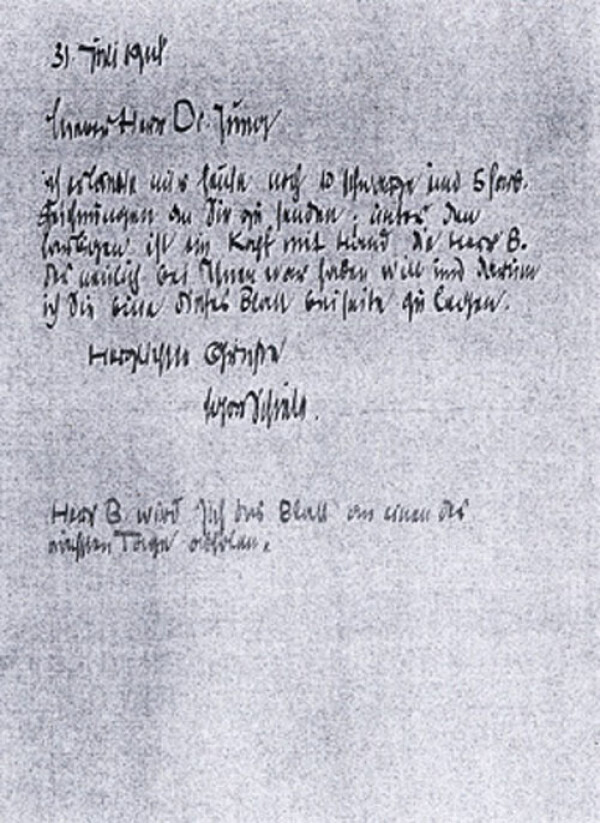 31. Juli
Herr Dr. Jung
ich erlaube mir heute noch 10 schwarze und 5 farb.
Zeichnungen an Sie zu senden. unter den
farbigen ist ein Kopf mit Hand die Herr B.
der neulich bei Ihnen war haben will und darum
ich Sie bitte dieses Blatt beiseite zu legen.
Herzliche Grüße
Egon Schiele.
Herr B. wird sich das Blatt an einem der
nächsten Tage abholen.